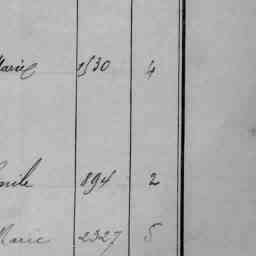 Marie 1530 4
Emile 894 2
Marie 2327 5